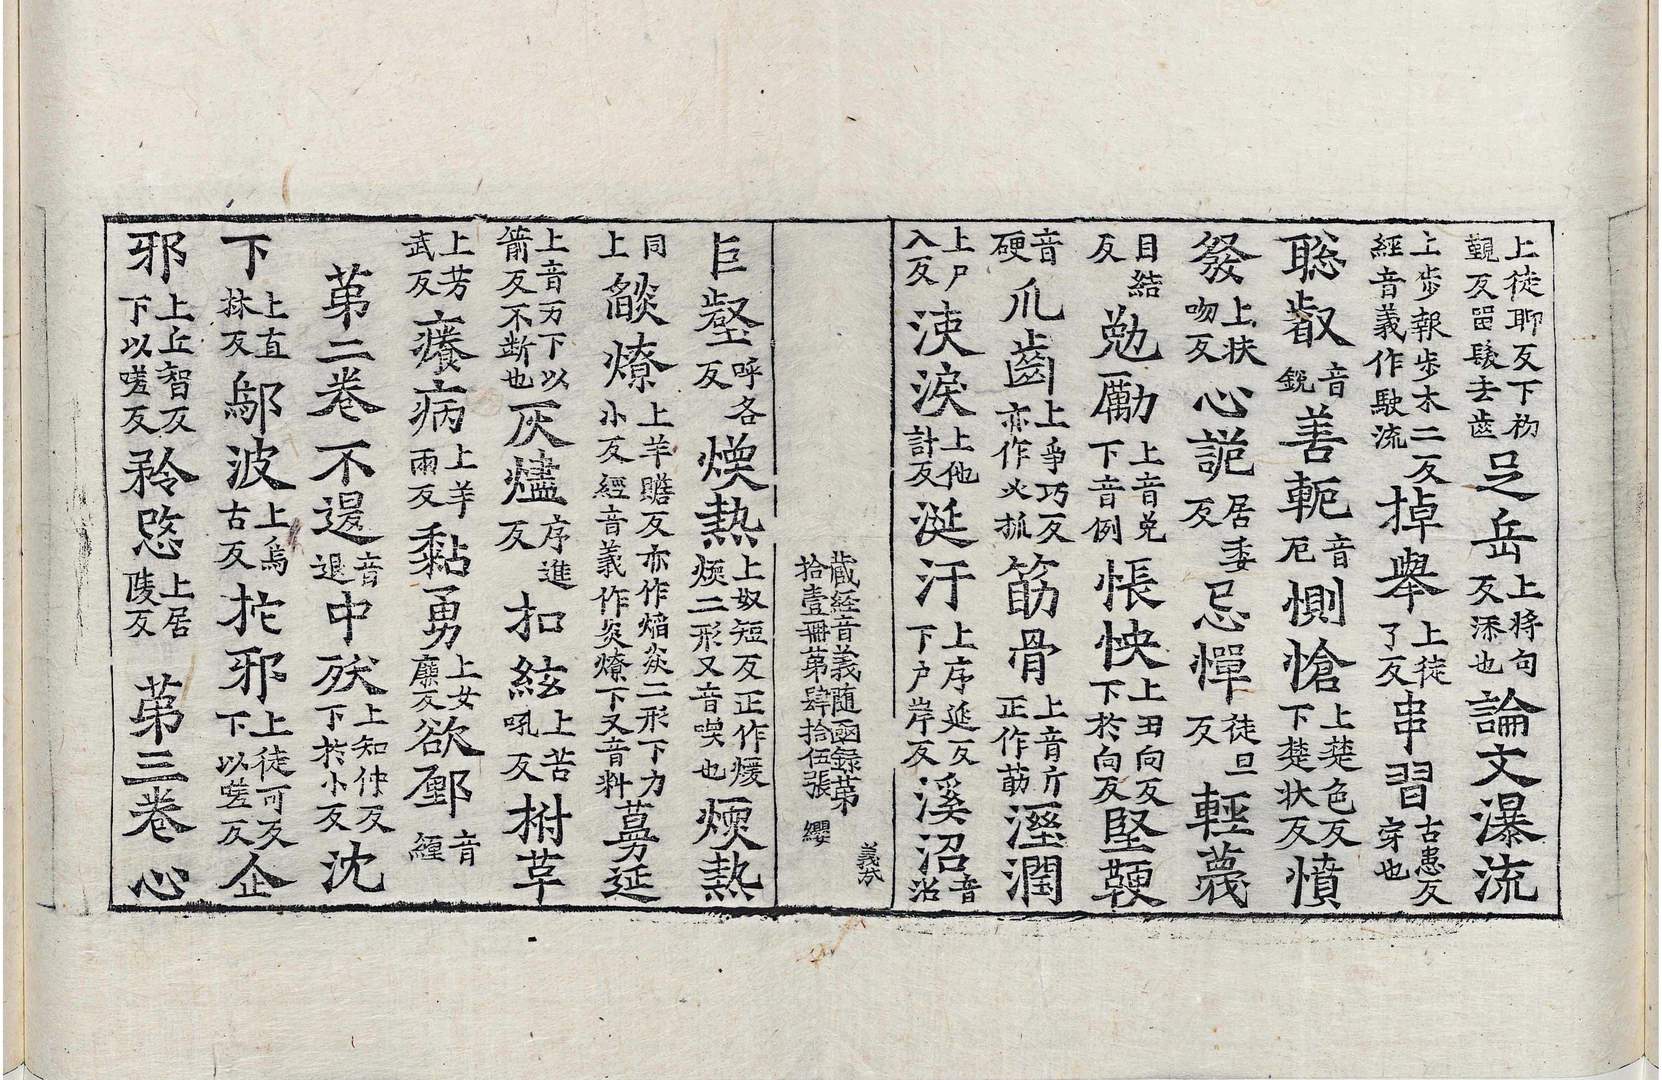 上徒聊反下初覲反毀齒去齒足岳上將句反添也論文瀑流
上步報步木二反經音義作駛流掉舉上徒了反串習古患反穿也
聡叡音銳善軛音厄惻愴上楚色反下楚状反憤
發上扶吻反心詭居委反忌憚徒旦反輕蔑
目結反勉勵上音免下音例悵怏上丑向反下於向反堅鞕
音硬爪齒上爭巧反亦作叉抓筋骨上音斤正作筋溼潤
上戸入反洟淚上他計反涎汗上序延反下户岸反溪沼音沼
藏経音義随函録第拾壹冊第肆拾伍張 纓 義
叵壑呼各反煗熱上奴短反正作煖煗二形又音喫也煗熱
同上燄燎上羊贍反亦作焔焱二形下力小反經音義作炎燎下又音料蔓延
上音万下以箭反不断也灰燼序進反扣紘上苦吼反柎草
上芳武反癢病上羊雨反黏勇上女廉反欲鄽音纏
第二卷不退音退中殀上知仲反下於小反沈
下上直林反鄔波上烏古反扡邪上徒可反下以嗟反企
邪上丘智反下以嗟反矜愍上居陵反第三卷心